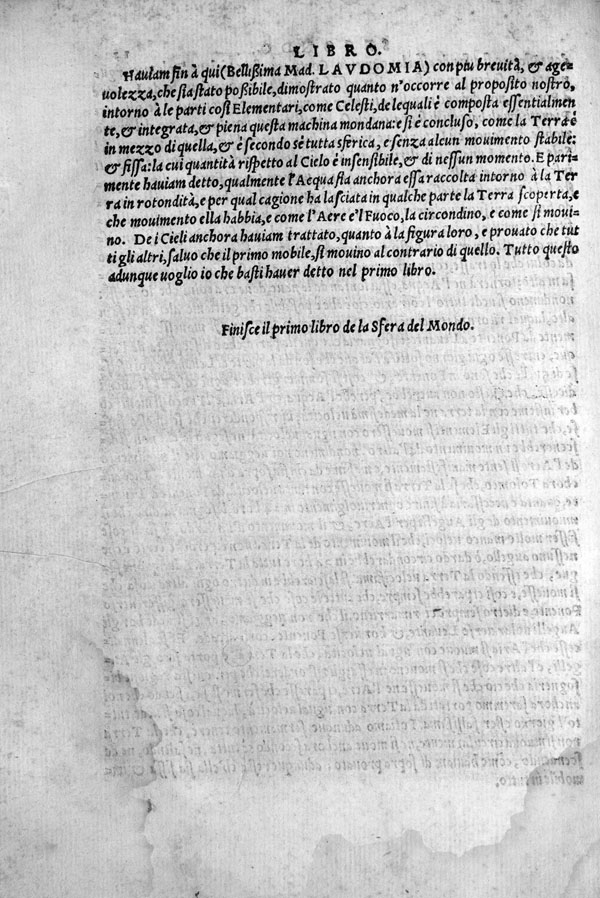 LIBRO.
Hauiam fin à qui (Bellißima Mad. LAVDOMIA) con piu breuità, & age
uolezza, che sia stato poßibile, dimostrato quanto n'occorre al proposito nostro,
intorno à le parti così Elementari, come Celesti, de le quali è composta essentialmen
te, & integrata, & piena questa machina mondana: e si è concluso, come la Terra è
in mezzo di quella, & è secondo se tutta sferica, e senza alcun mouimento stabile:
& fissa: la cui quantità rispetto al Cielo è insensibile, & di nessun momento. E pari
mente hauiam detto, qualmente l'Acqua sta anchora essa raccolta intorno à la Ter
ra in rotondità, e per qual cagione ha lasciata in qualche parte la Terra scoperta, e
che mouimento ella habbia, e come l'Aere e'l Fuoco, la circondino, e come si moui
no. De i Cieli anchora hauiam trattato, quanto à la figura loro, e prouato che tut
ti gli altri, saluo che il primo mobile, si mouino al contrario di quello. Tutto questo
adunque uoglio io che basti hauer detto nel primo libro.
Finisce il primo libro de la Sfera del Mondo.